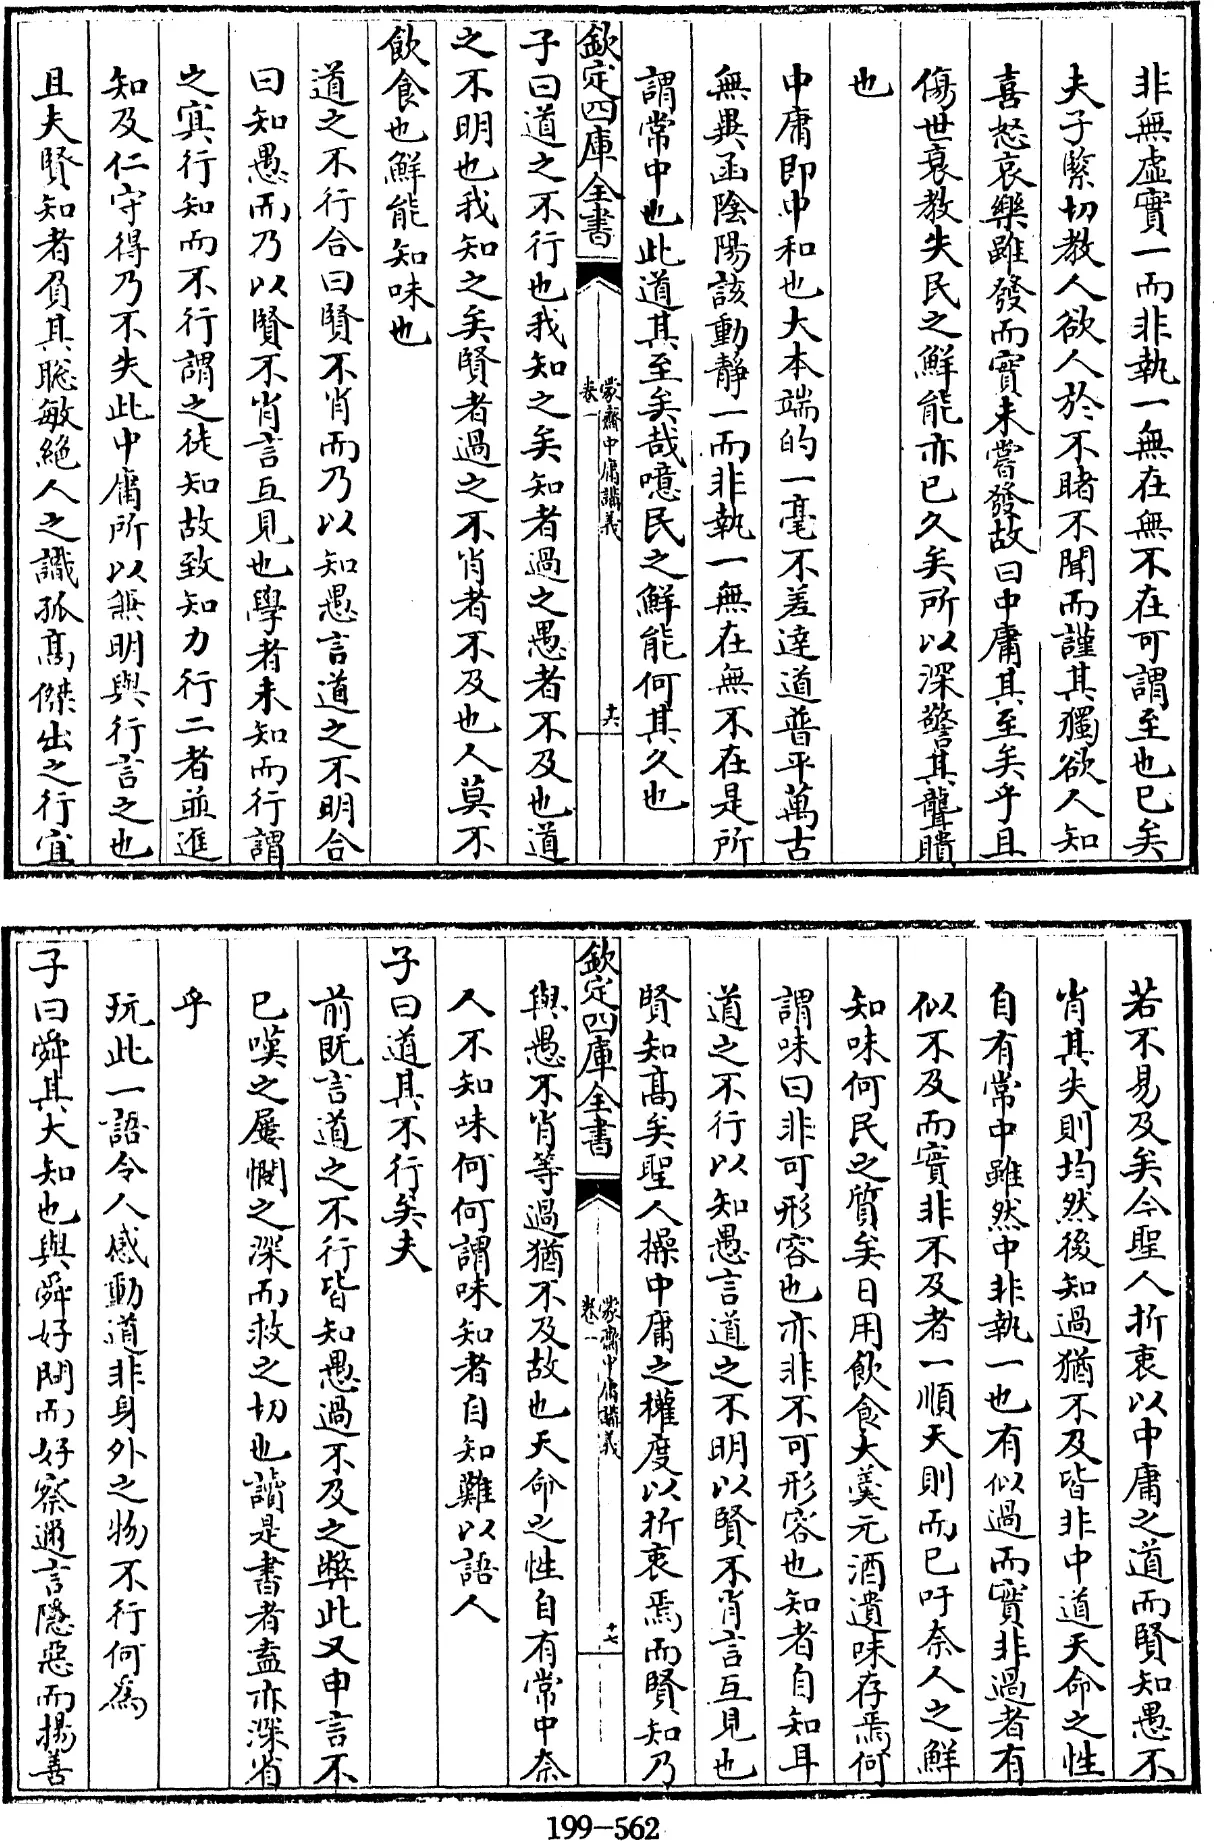 非無虛實一而非執一無在無不在可謂至也已矣
夫子緊切教人欲人於不睹不聞而謹其獨欲人知
喜怒哀樂雖發而實未嘗發故曰中庸其至矣乎且
傷世衰教失民之鮮能亦已久矣所以深警其聾聵
也
中庸即中和也大本端的一毫不差達道普平萬古
無異函陰陽該動靜一而非執一無在無不在是所
謂常中也此道其至矣哉噫民之鮮能何其久也
欽定四庫全書
蒙齋中庸講義
卷一
十六
子曰道之不行也我知之矣知者過之愚者不及也道
之不明也我知之矣賢者過之不肖者不及也人莫不
飲食也鮮能知味也
道之不行合曰賢不肖而乃以知愚言道之不明合
曰知愚而乃以賢不肖言互見也學者未知而行謂
之冥行知而不行謂之徒知故致知力行二者並進
知及仁守得乃不失此中庸所以兼明與行言之也
且夫賢知者負其聰敏絶人之識孤髙傑出之行宜
若不易及矣今聖人折衷以中庸之道而賢知愚不
肖其失則均然後知過猶不及皆非中道天命之性
自有常中雖然中非執一也有似過而實非過者有
似不及而實非不及者一順天則而已吁奈人之鮮
知味何民之質矣日用飲食大羹元酒遺味存焉何
謂味曰非可形容也亦非不可形容也知者自知耳
道之不行以知愚言道之不明以賢不肖言互見也
賢知髙矣聖人操中庸之權度以折衷焉而賢知乃
欽定四庫全書
蒙齋中庸講義
卷一
十七
與愚不肖等過猶不及故也天命之性自有常中奈
人不知味何何謂味知者自知難以語人
子曰道其不行矣夫
前既言道之不行皆知愚過不及之弊此又申言不
已嘆之屢憫之深而救之切也讀是書者盍亦深省
乎
玩此一語令人感動道非身外之物不行何為
子曰舜其大知也與舜好問而好察邇言隱惡而揚善
199-562